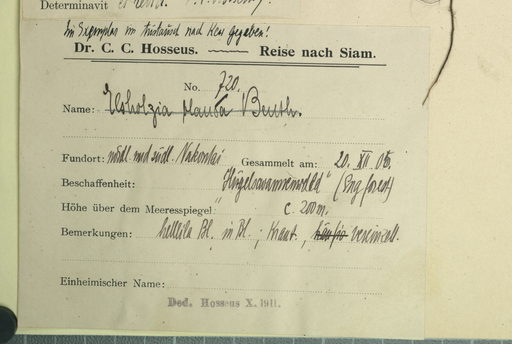 Determinavit
Ein Exemplar im Tausch nach Kew gegeben!
Dr. C. C. Hosseus. Reise nach Siam.
No. 720.
Name: Elsholzia blanda Benth.
Fundort: nördl. und südl. Nakontai
Gesammelt am: 20. XII 05.
Beschaffenheit: "Hügelsavannenwald" (Eng forest)
Höhe über dem Meeresspiegel: c. 200 m.
Bemerkungen: helllila Bl. in Bl.; Kraut, häufig vereinzelt.
Einheimischer Name:
Ded. Hosseus X. 1911.